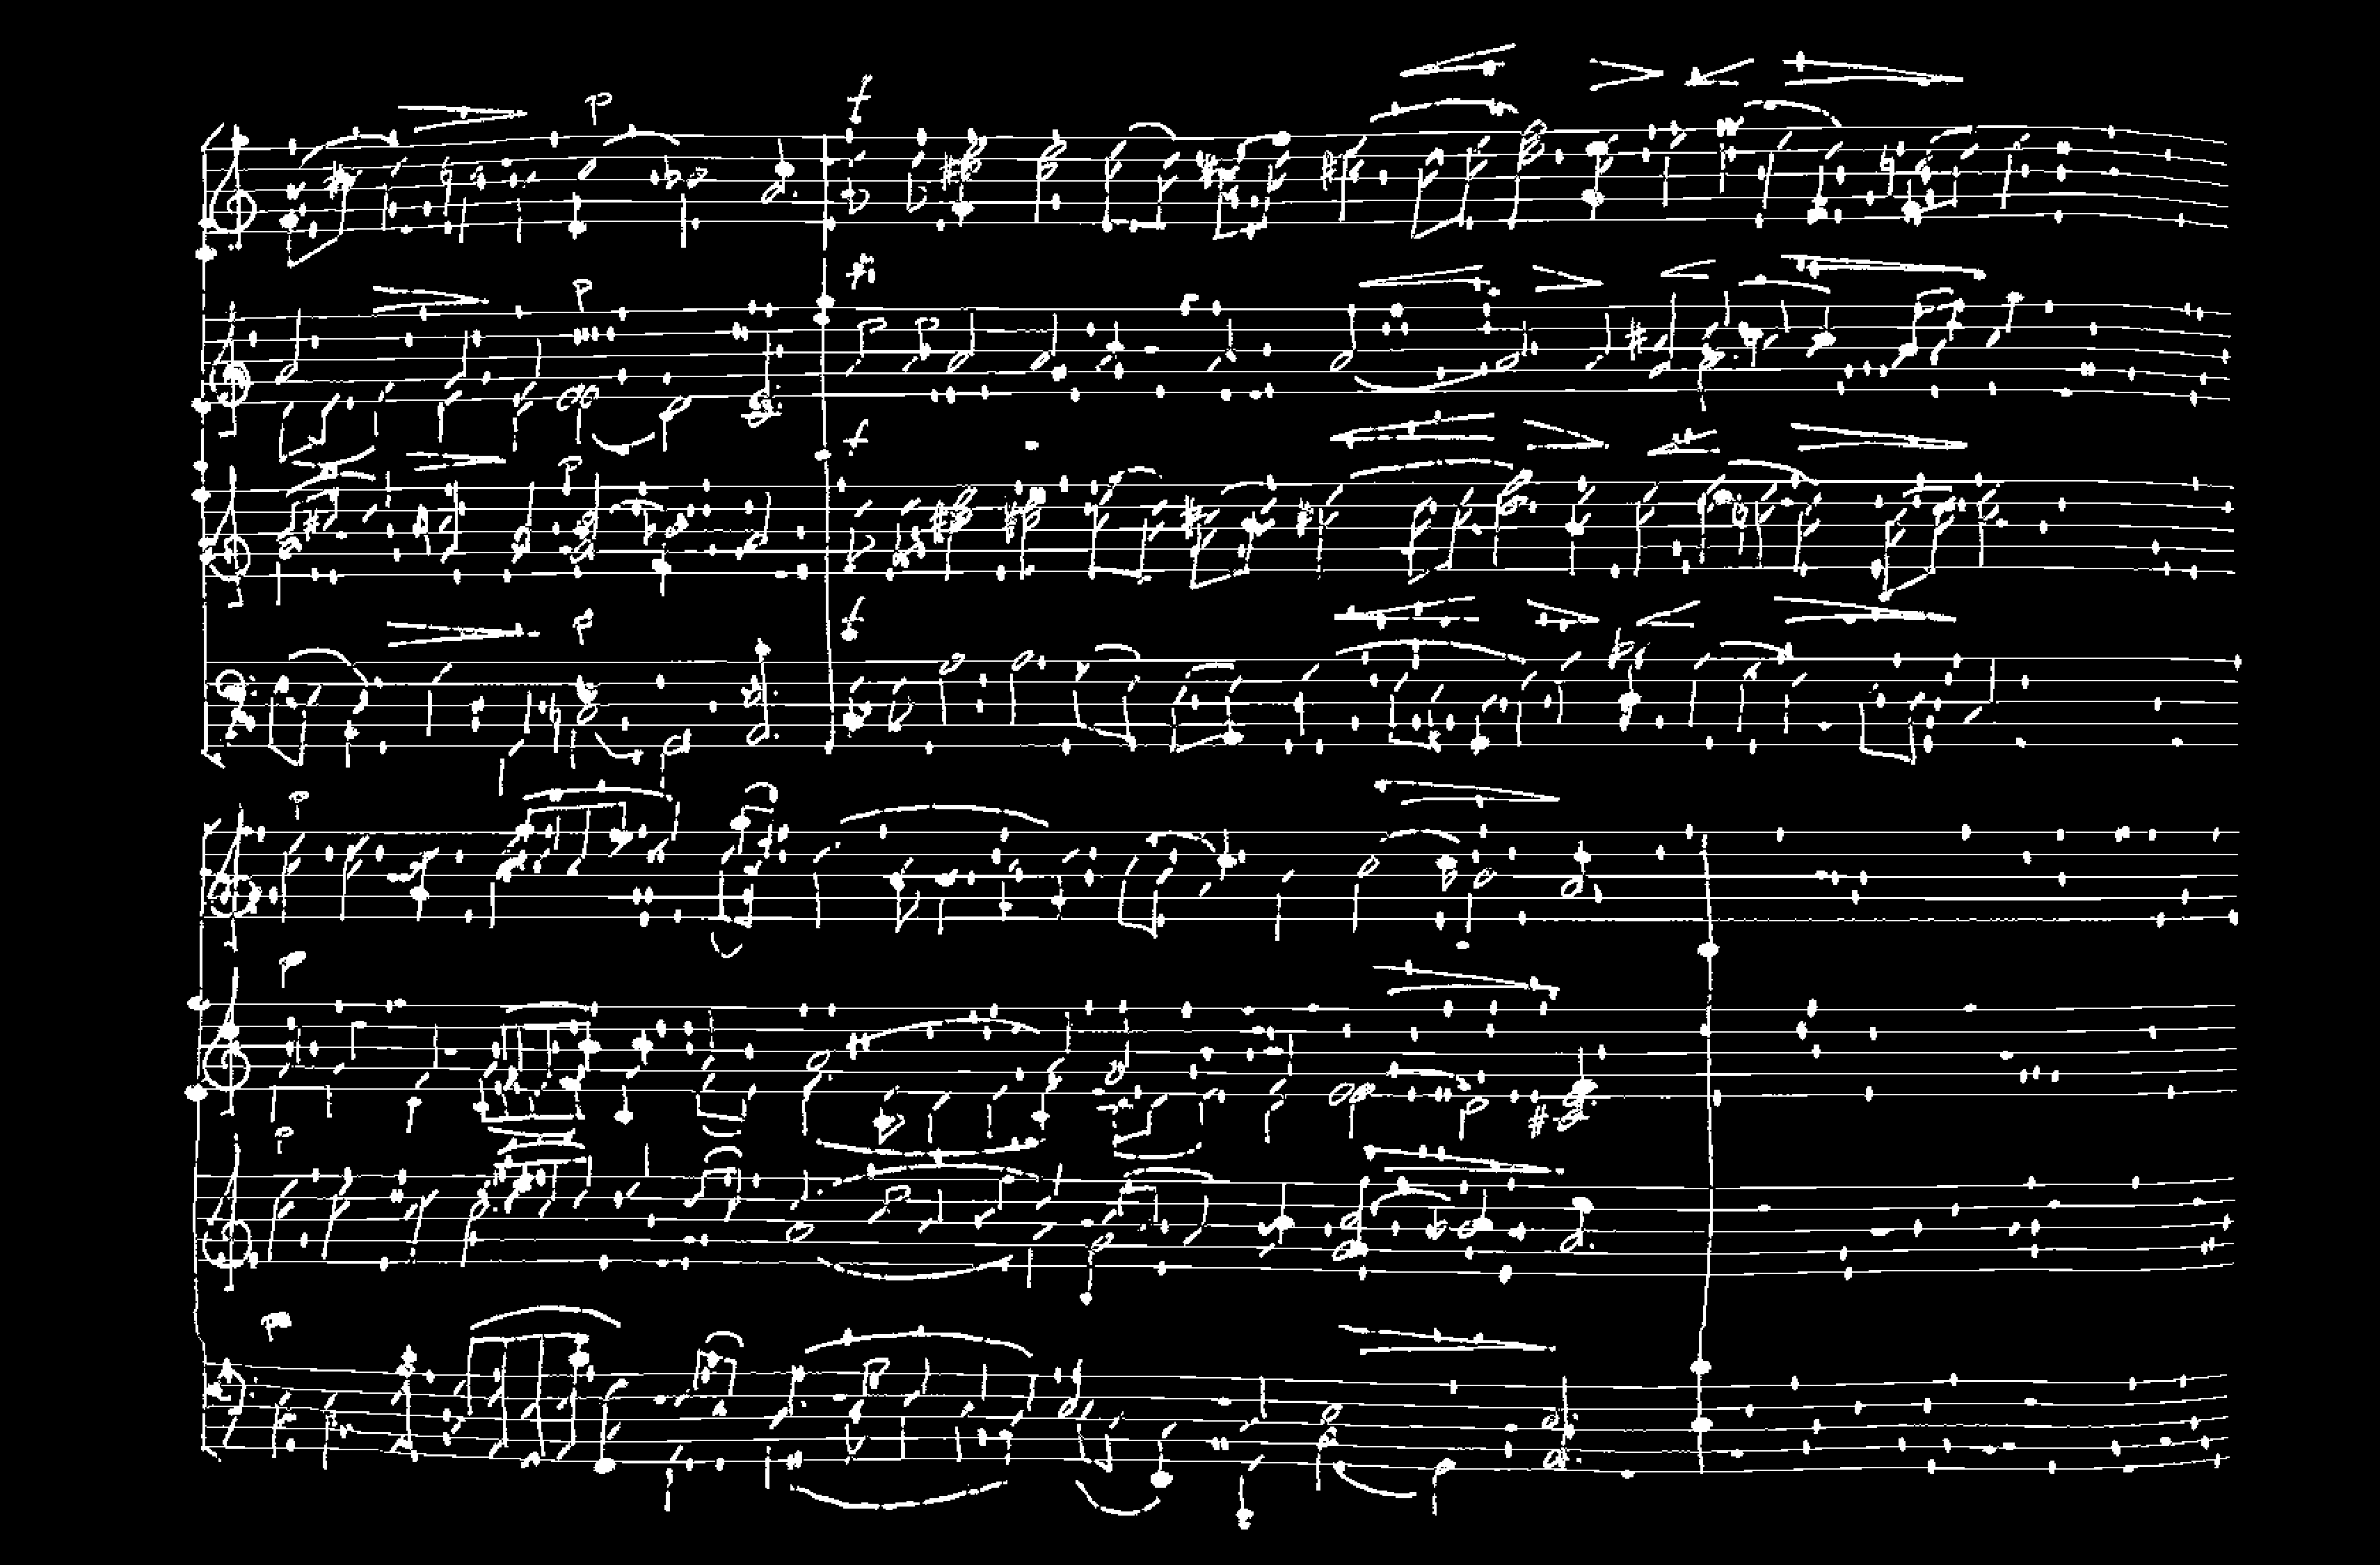 p f
p
p f
p f
p
p
p
p